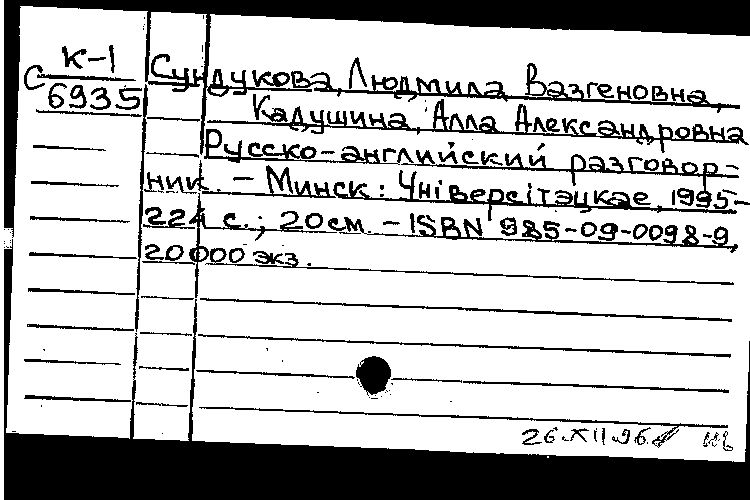 К-1
С 6935
Сундукова, Людмила Вазгеновна,
Кадушина, Алла Александровна
Русско-английский разговор=
ник. - Минск: Унiверсiтэцкае, 1995-
224 с.; 20см. - ISBN 985-09-0098-9,
20000 экз.
26.XII.96